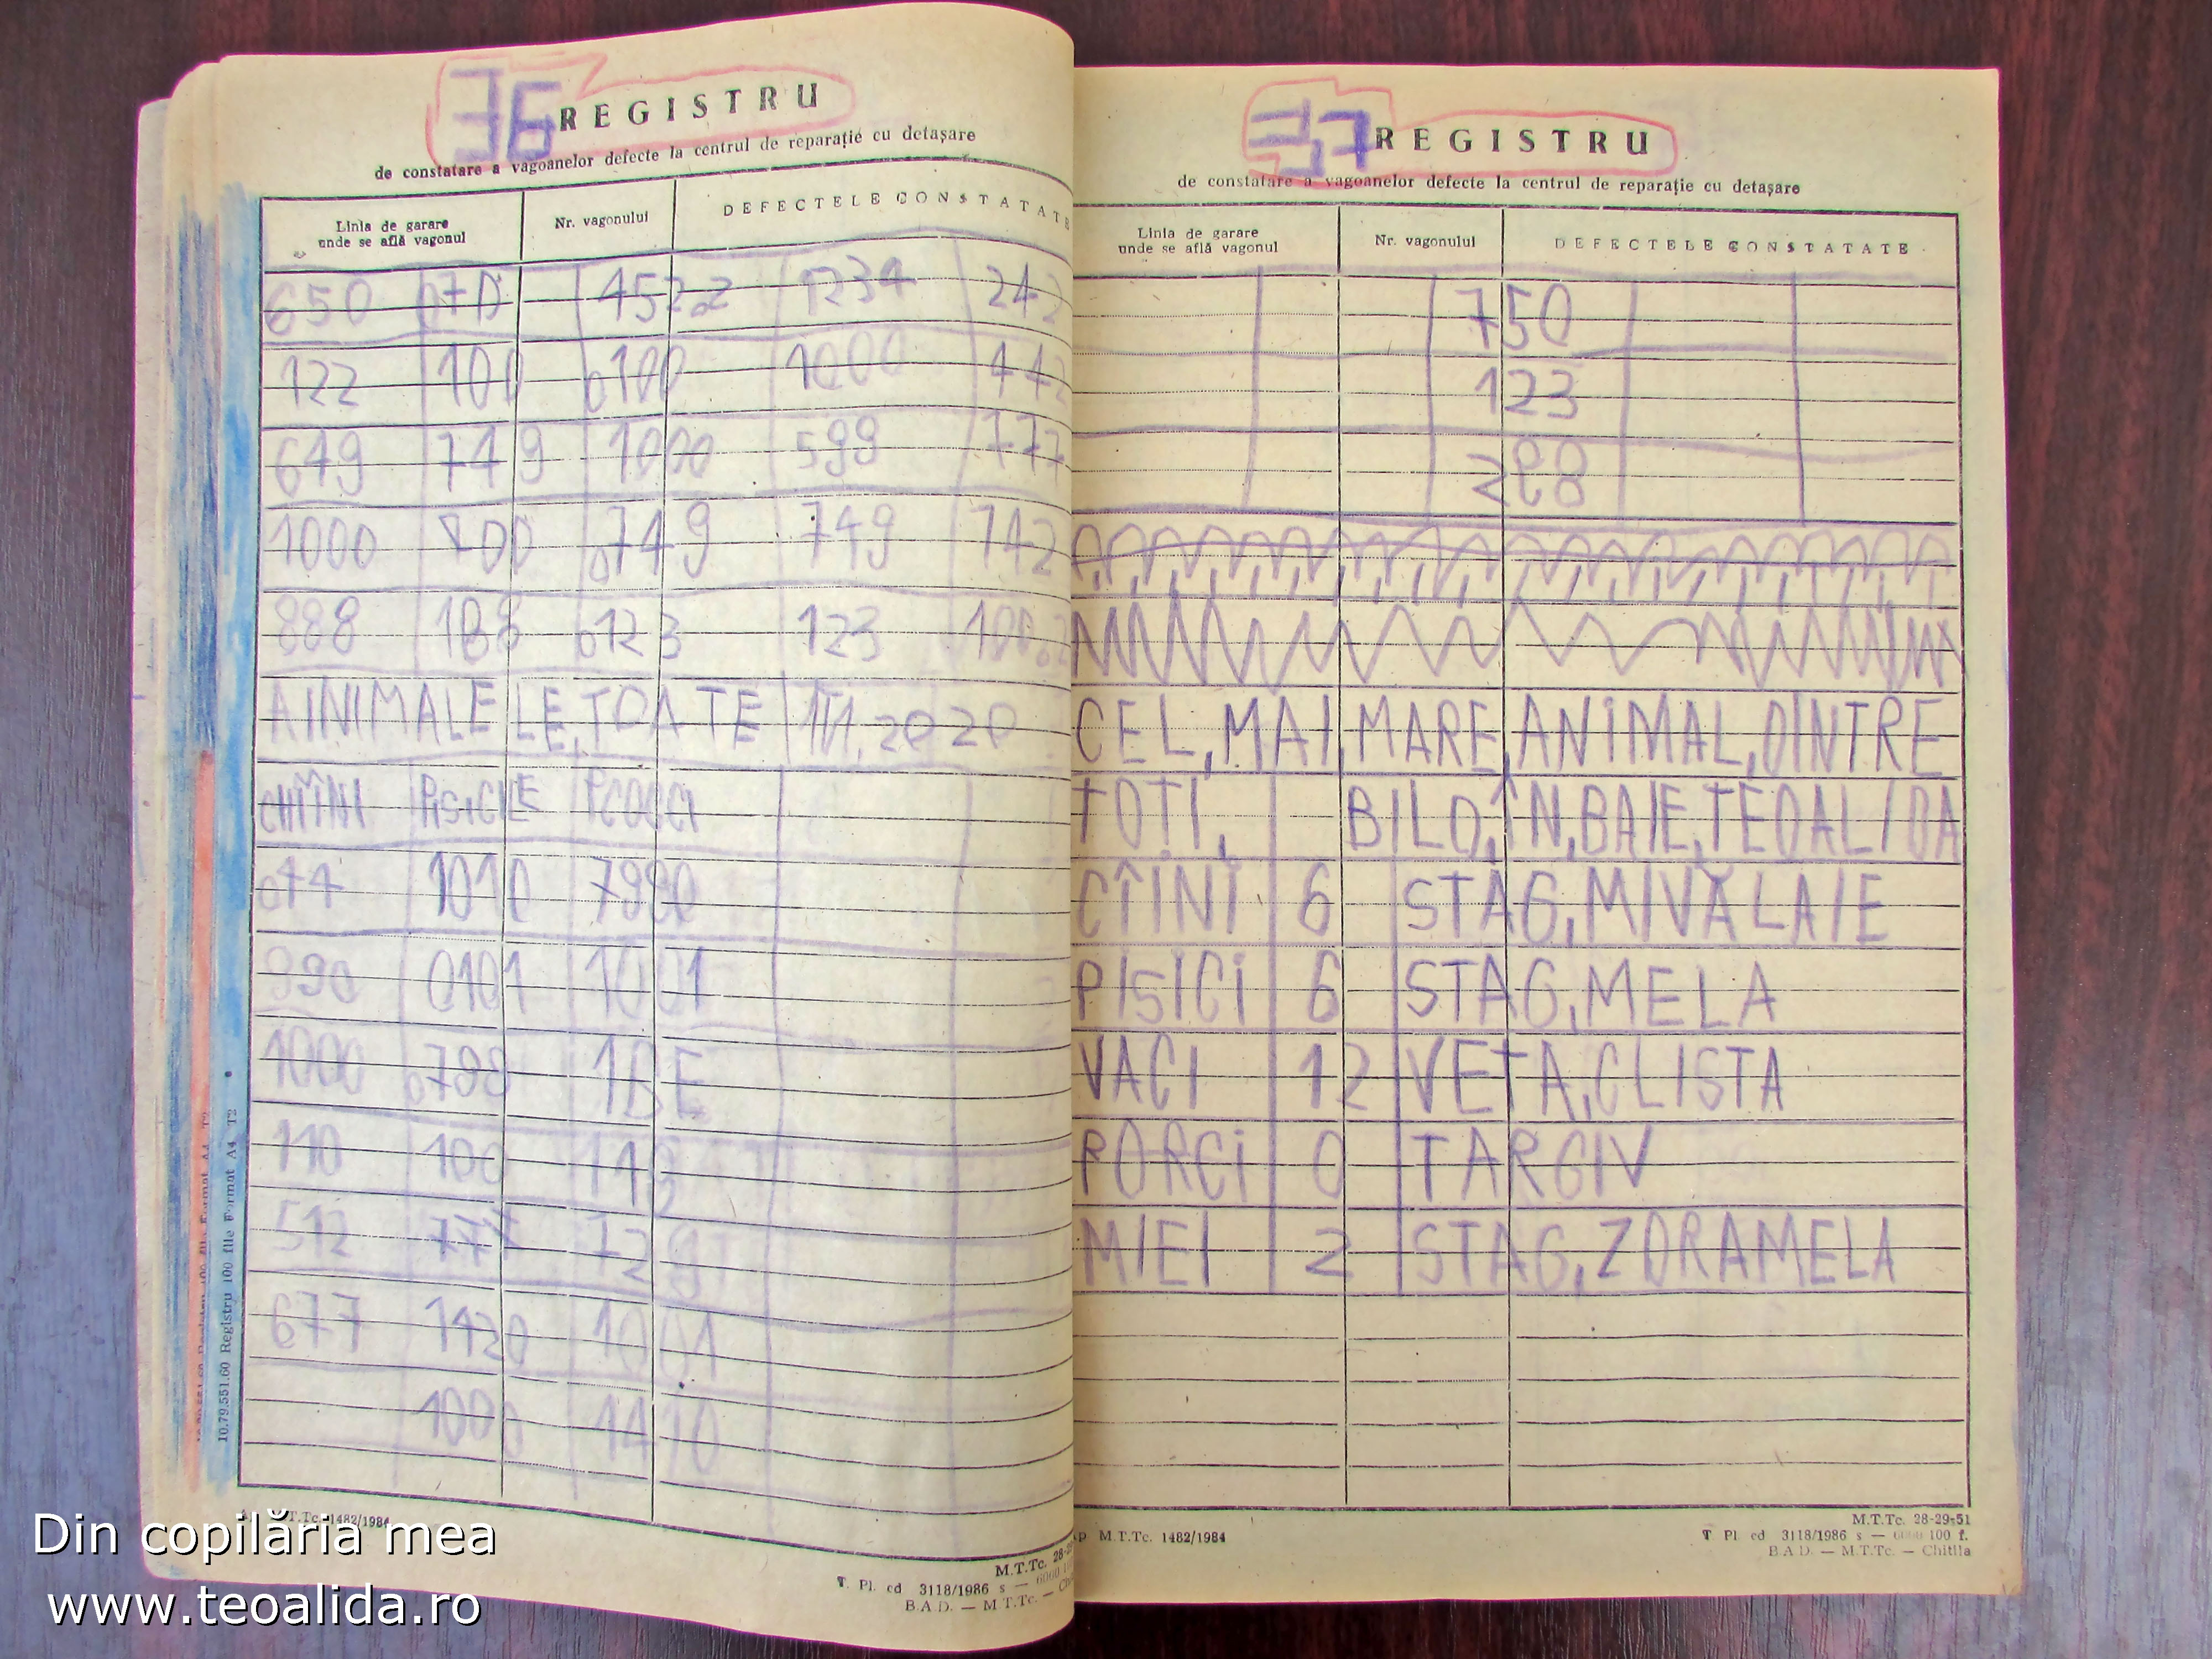 36 REGISTRU
de constatare a vagoanelor defecte la centrul de reparație cu detașare
Linia de garare unde se află vagonul
Nr. vagonului
DEFECTELE CONSTATATE
650 1234 242
122 100 0100 1000 442
649 749 1000 599 777
1000 0749 749 742
888 188 0123 123
AINIMALE LE,TOATE 20 20
PISICILE
1010 7990
990 0101 1001
1000 0799
110 100
512 777 129
677 1120 1001
1000 1410
10.79.551.60 Registru 100 file Format A4 T2
M.T.Tc. 1482/1984
T. Pl. cd 3118/1986 s — 6000
B.A.D. — M.T.Tc. —
37 REGISTRU
de constatare a vagoanelor defecte la centrul de reparație cu detașare
Linia de garare unde se află vagonul
Nr. vagonului
DEFECTELE CONSTATATE
750
123
298
CEL,MAI,MARE,ANIMAL,DINTRE
TOTI, BILD,ÎN,BAIE,TEOALIDA
CÎINI 6 STAG,MIVĂLAIE
PISICI 6 STAG,MELA
VACI 12 VETA,CLISTA
PORCI 0 TARGIV
MIEI 2 STAG,ZORAMELA
M.T.Tc. 1482/1984
M.T.Tc. 28-29-51
T Pl. cd 3118/1986 s — 6000 100 f.
B.A.D. — M.T.Tc. — Chitila
Din copilăria mea
www.teoalida.ro